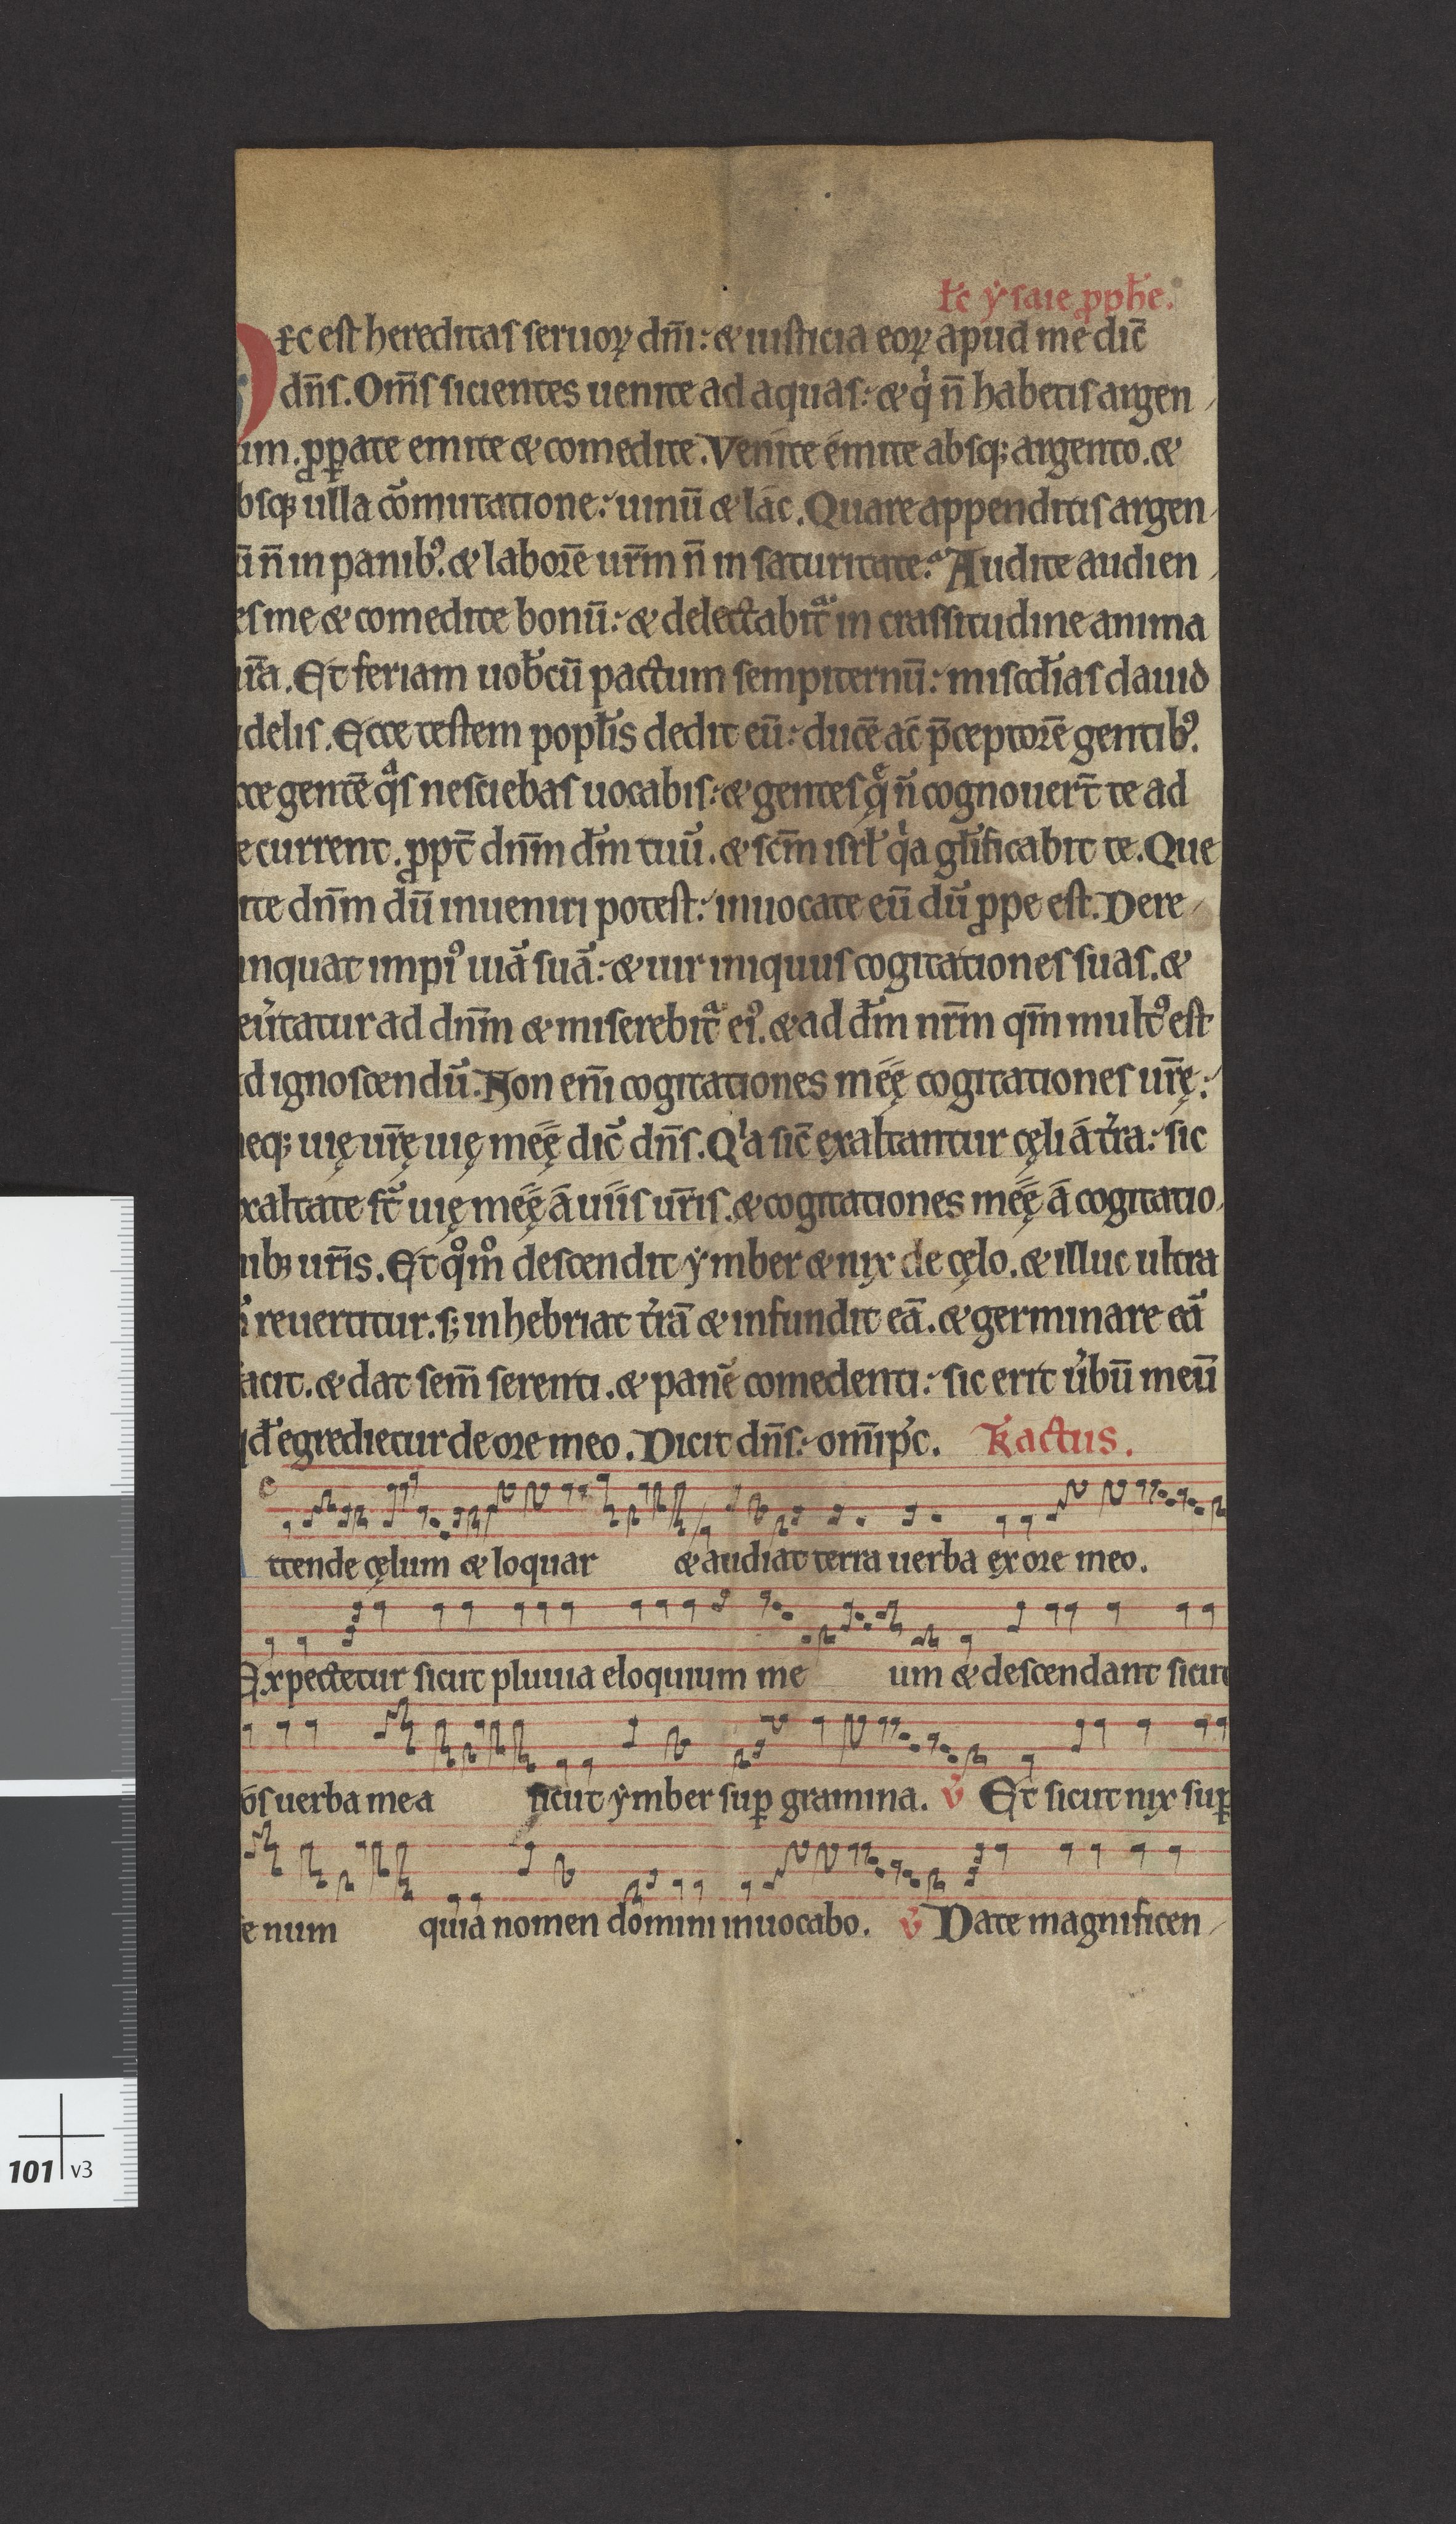 Lc̄ ẏsaie ꝓph̄e.
Ec est hereditas seruoꝝ dn̄i: & iusticia eoꝝ apud me dic̄
dn̄s. Om̄s sicientes uenite ad aquas: & qͥ n̄ habetis argen
um. ꝓꝑate emite & comedite. Venite emite absq; argento. &
bsq; ulla cōmutatione: uinū & lac. Quare appenditis argen
ū n̄ in panib⁹. & laborē ur̄m n̄ in saturitate. Audite audien
es me & comedite bonū: & delectabit᷑ in crassitudine anima
ur̄a. Et feriam uob̄cū pactum sempiternū: misc̄dias dauid
idelis. Ecce testem popl̄is dedit eū: ducē ac̄ p̄ceptorē gentib⁹.
cce gentē qͣs nesciebas uocabis: & gentes qͤ n̄ cognouer̄t te ad
e current. ꝓpt̄ dn̄m dm̄ tuū. & scm̄ isrl̄ qͥa glīficabit te. Que
rite dn̄m dū inueniri potest: inuocate eū dū ꝓpe est. Dere
inquat impi⁹ uiā suā: & uir iniquus cogitationes suas. &
eu̓tatur ad dn̄m & miserebit᷑ ei⁹. & ad dm̄ nr̄m qm̄ mult⁹ est
d ignoscendū. Non eni̅ cogitationes meę cogitationes ur̄ę:
neq; uię ur̄ę uię meę dic̄ dn̄s. Qͥa sic̄ exaltantur cęli á t̓ra: sic
xaltate st̄ uię meę á uiis ur̄is. & cogitationes meę á cogitatio
nib; ur̄is. Et qͦmͦ descendit ẏmber & nix de cęlo. & illuc ultra
n̄ reuertitur. s; inhebriat t̓rā & infundit eā. & germinare eā
acit. & dat sem̄ serenti. & panē comedenti: sic erit u̓bū meū
qd̄ egredietur de ore meo. Dicit dn̄s: omīp̄c. Tractus.
ttende cęlum & loquar & audiat terra uerba ex ore meo.
Expectetur sicut pluuia eloquium me um & descendant sicut
os uerba mea sicut ẏmber suꝑ gramina. v̄ Et sicut nix suꝑ
e num quia nomen domini inuocabo. v̄ Date magnificen
101 v3